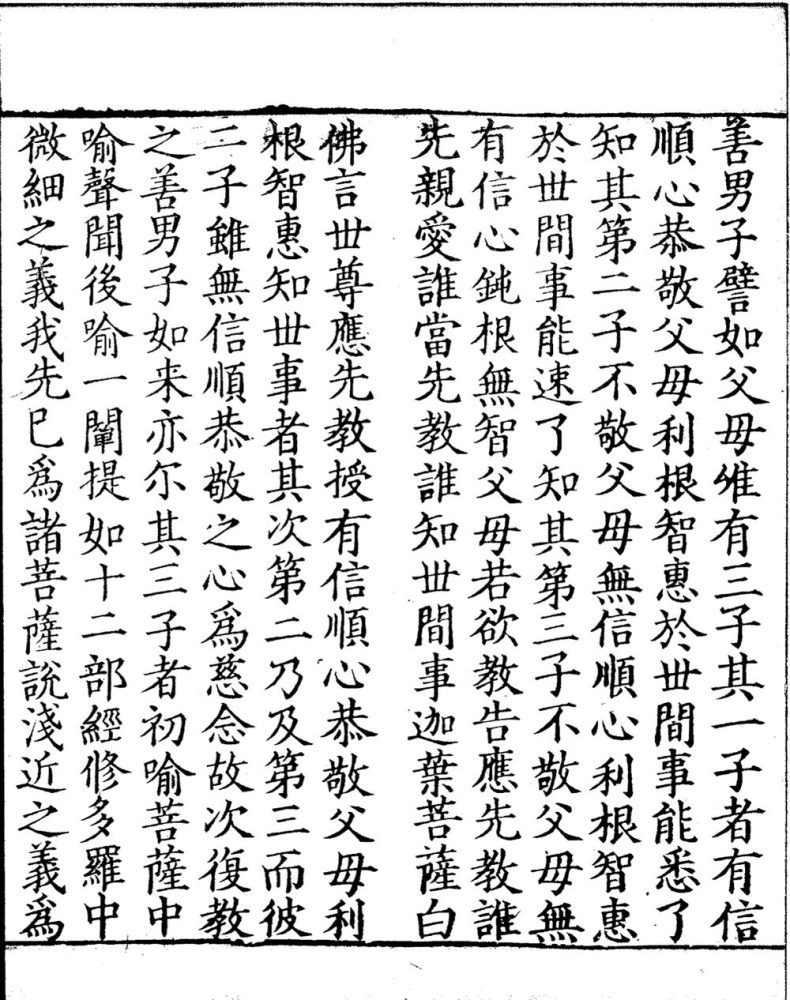 善男子譬如父母唯有三子其一子者有信
順心恭敬父母利根智惠於世間事能悉了
知其第二子不敬父母無信順心利根智惠
於世間事能速了知其第三子不敬父母無
有信心鈍根無智父母若欲教告應先教誰
先親愛誰當先教誰知世間事迦葉菩薩白
佛言世尊應先教授有信順心恭敬父母利
根智惠知世事者其次第二乃及第三而彼
二子雖無信順恭敬之心爲慈念故次復教
之善男子如来亦尔其三子者初喻菩薩中
喻聲聞後喻一闡提如十二部經修多羅中
微細之義我先已爲諸菩薩說淺近之義爲